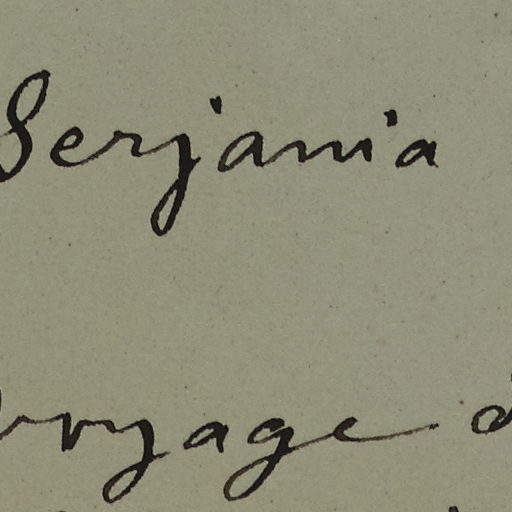 Serjania
voyage d